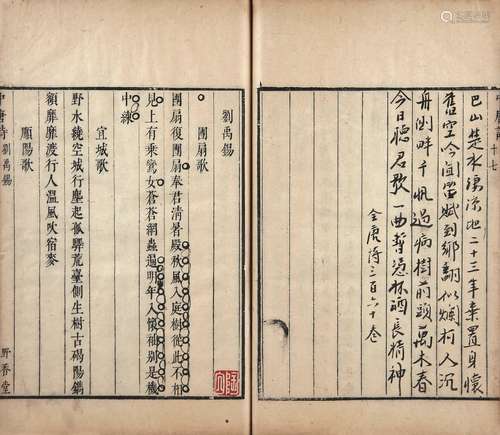 巴山楚水淒涼地二十三年棄置身懷
舊空吟聞笛賦到鄉翻似爛柯人沉
舟側畔千帆過病樹前頭萬木春
今日聽君歌一曲暫憑杯酒長精神
全唐詩三百六十卷
劉禹錫
團扇歌
團扇復團扇奉君清暑殿秋風入庭樹從此不相
見上有乘鸞女蒼蒼網蟲遍明年入懷袖別是機
中練
宜城歌
野水繞空城行塵起孤驛荒臺側生樹古碣陽鐫
額靡靡渡行人溫風吹宿麥
順陽歌
中唐詩 劉禹錫 野香堂